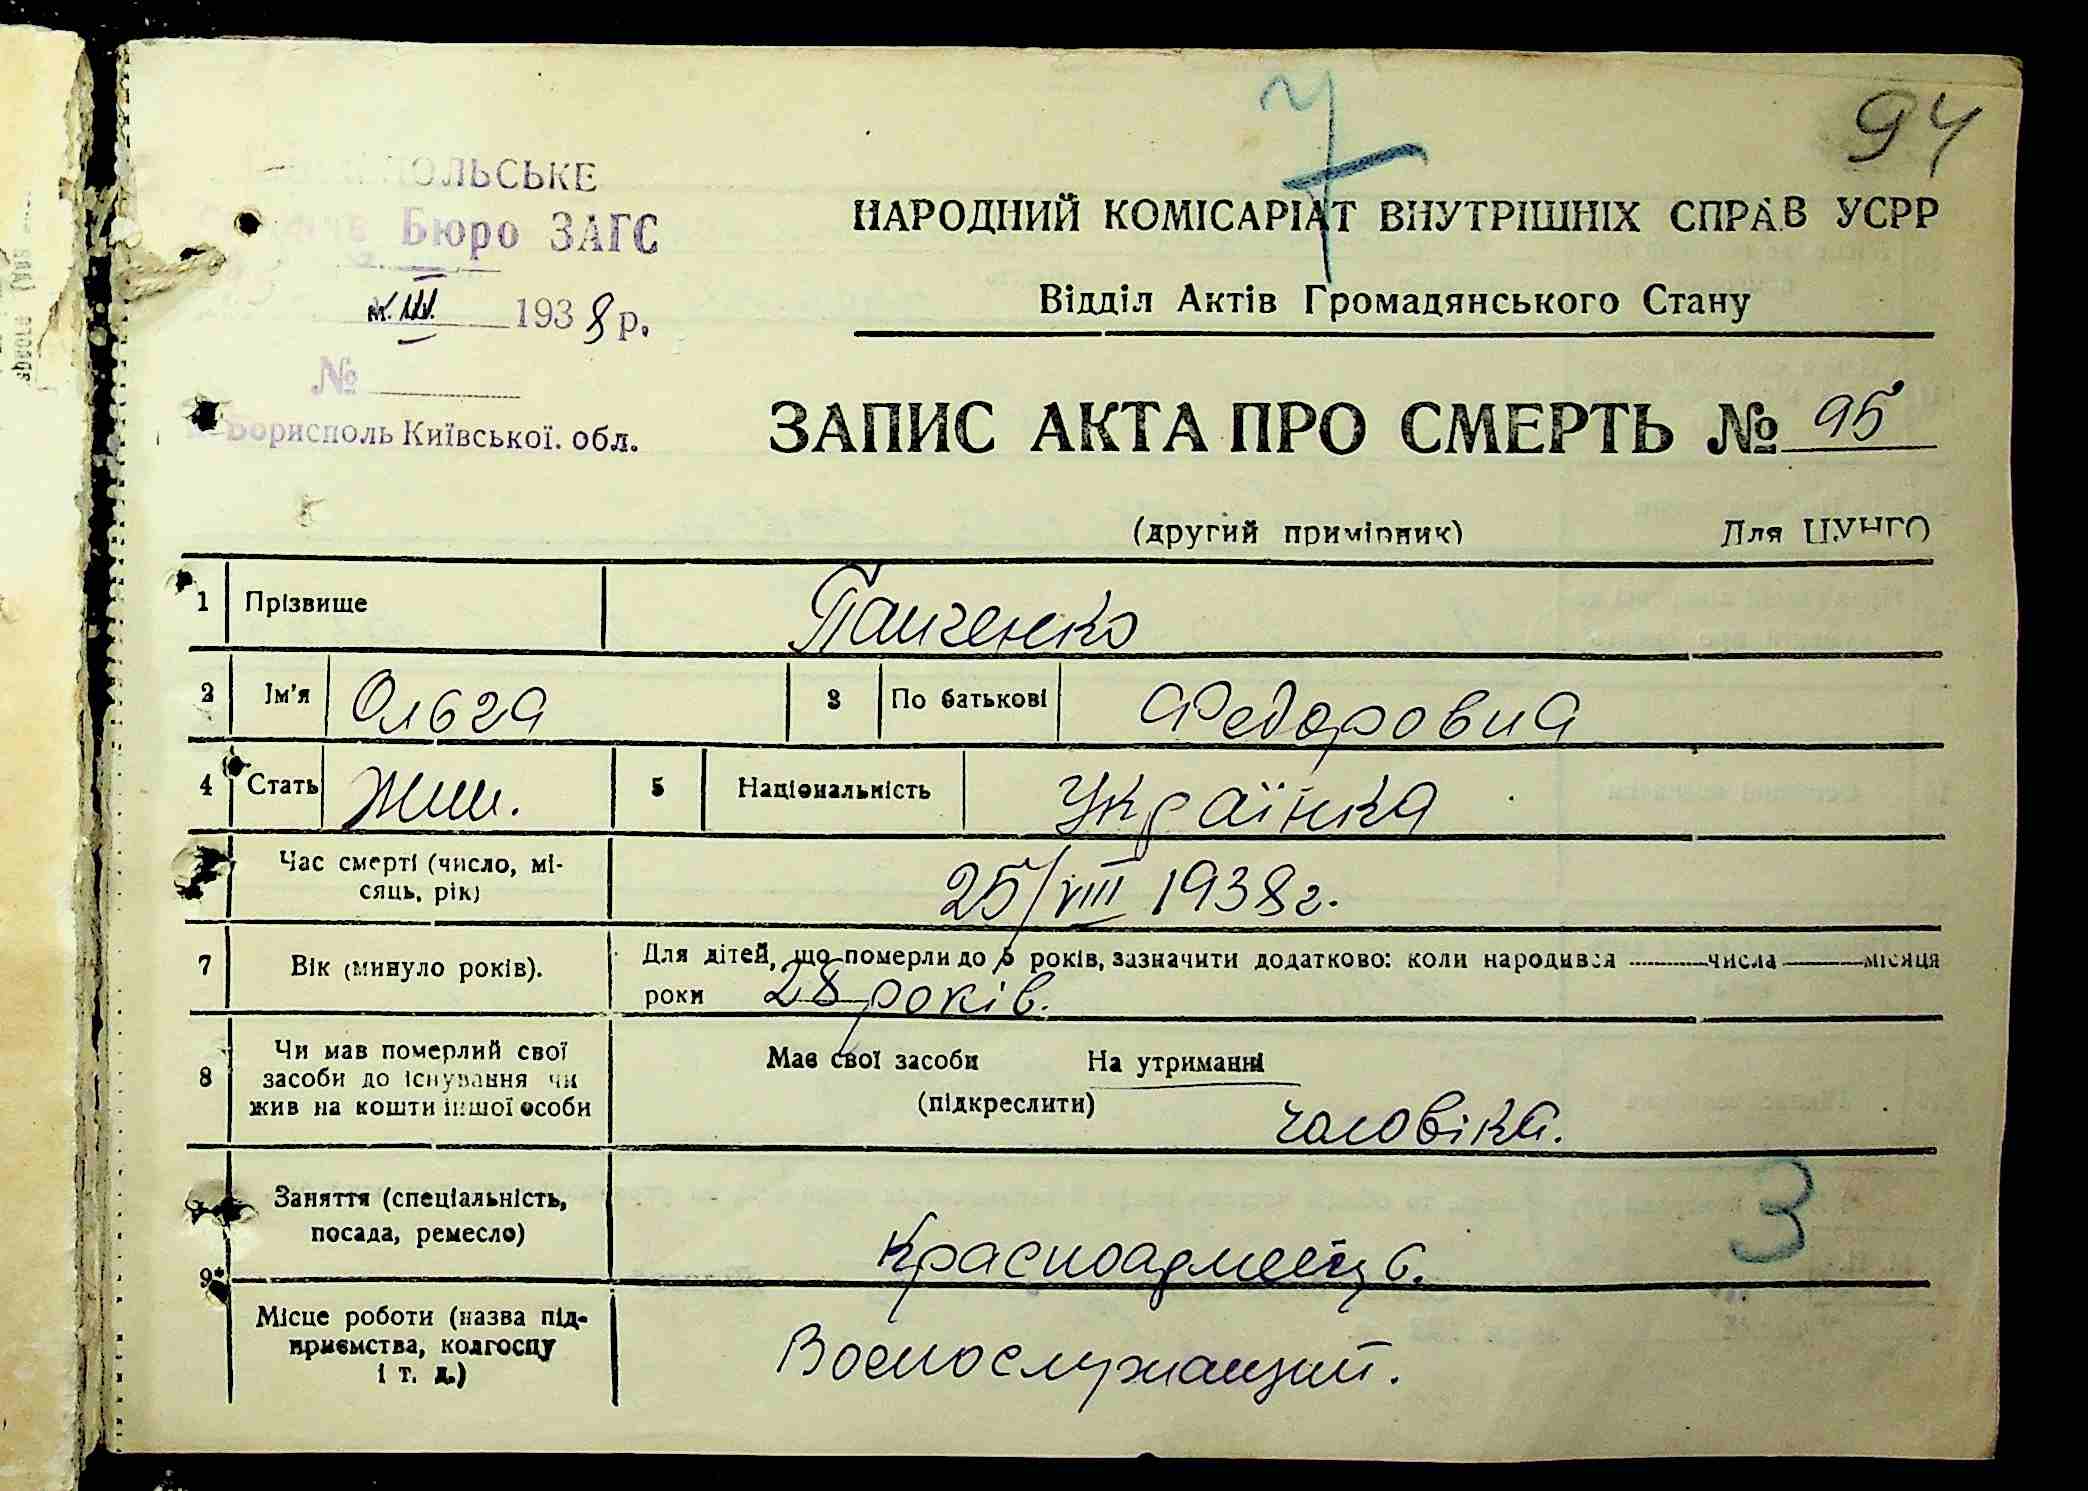 94
7
ПОЛЬСЬКЕ
Бюро ЗАГС
м. III. 1938 р.
№
Бориспoль Київської. обл.
НАРОДНИЙ КОМІСАРІАТ ВНУТРІШНІХ СПРАВ УСРР
Відділ Актів Громадянського Стану
ЗАПИС АКТА ПРО СМЕРТЬ № 95
(другий примірник) Для ЦУНГО
1 Прізвище Панченко
2 Ім'я Ольга 3 По батькові Федоровна
4 Стать Жин. 5 Національність Українка
Час смерті (число, мі-
сяць, рік) 25/VIII 1938 г.
7 Вік (минуло років). Для дітей, що померли до 5 років, зазначити додатково: коли народився числа місяця
роки 28 років.
8 Чи мав померлий свої
засоби до існування чи
жив на кошти іншої особи
Має свої засоби На утриманні
(підкреслити)
чоловіка.
9 Заняття (спеціальність,
посада, ремесло) Красноармеец.
3
Місце роботи (назва під-
приємства, колгоспу
і т. д.) Военослужащий.